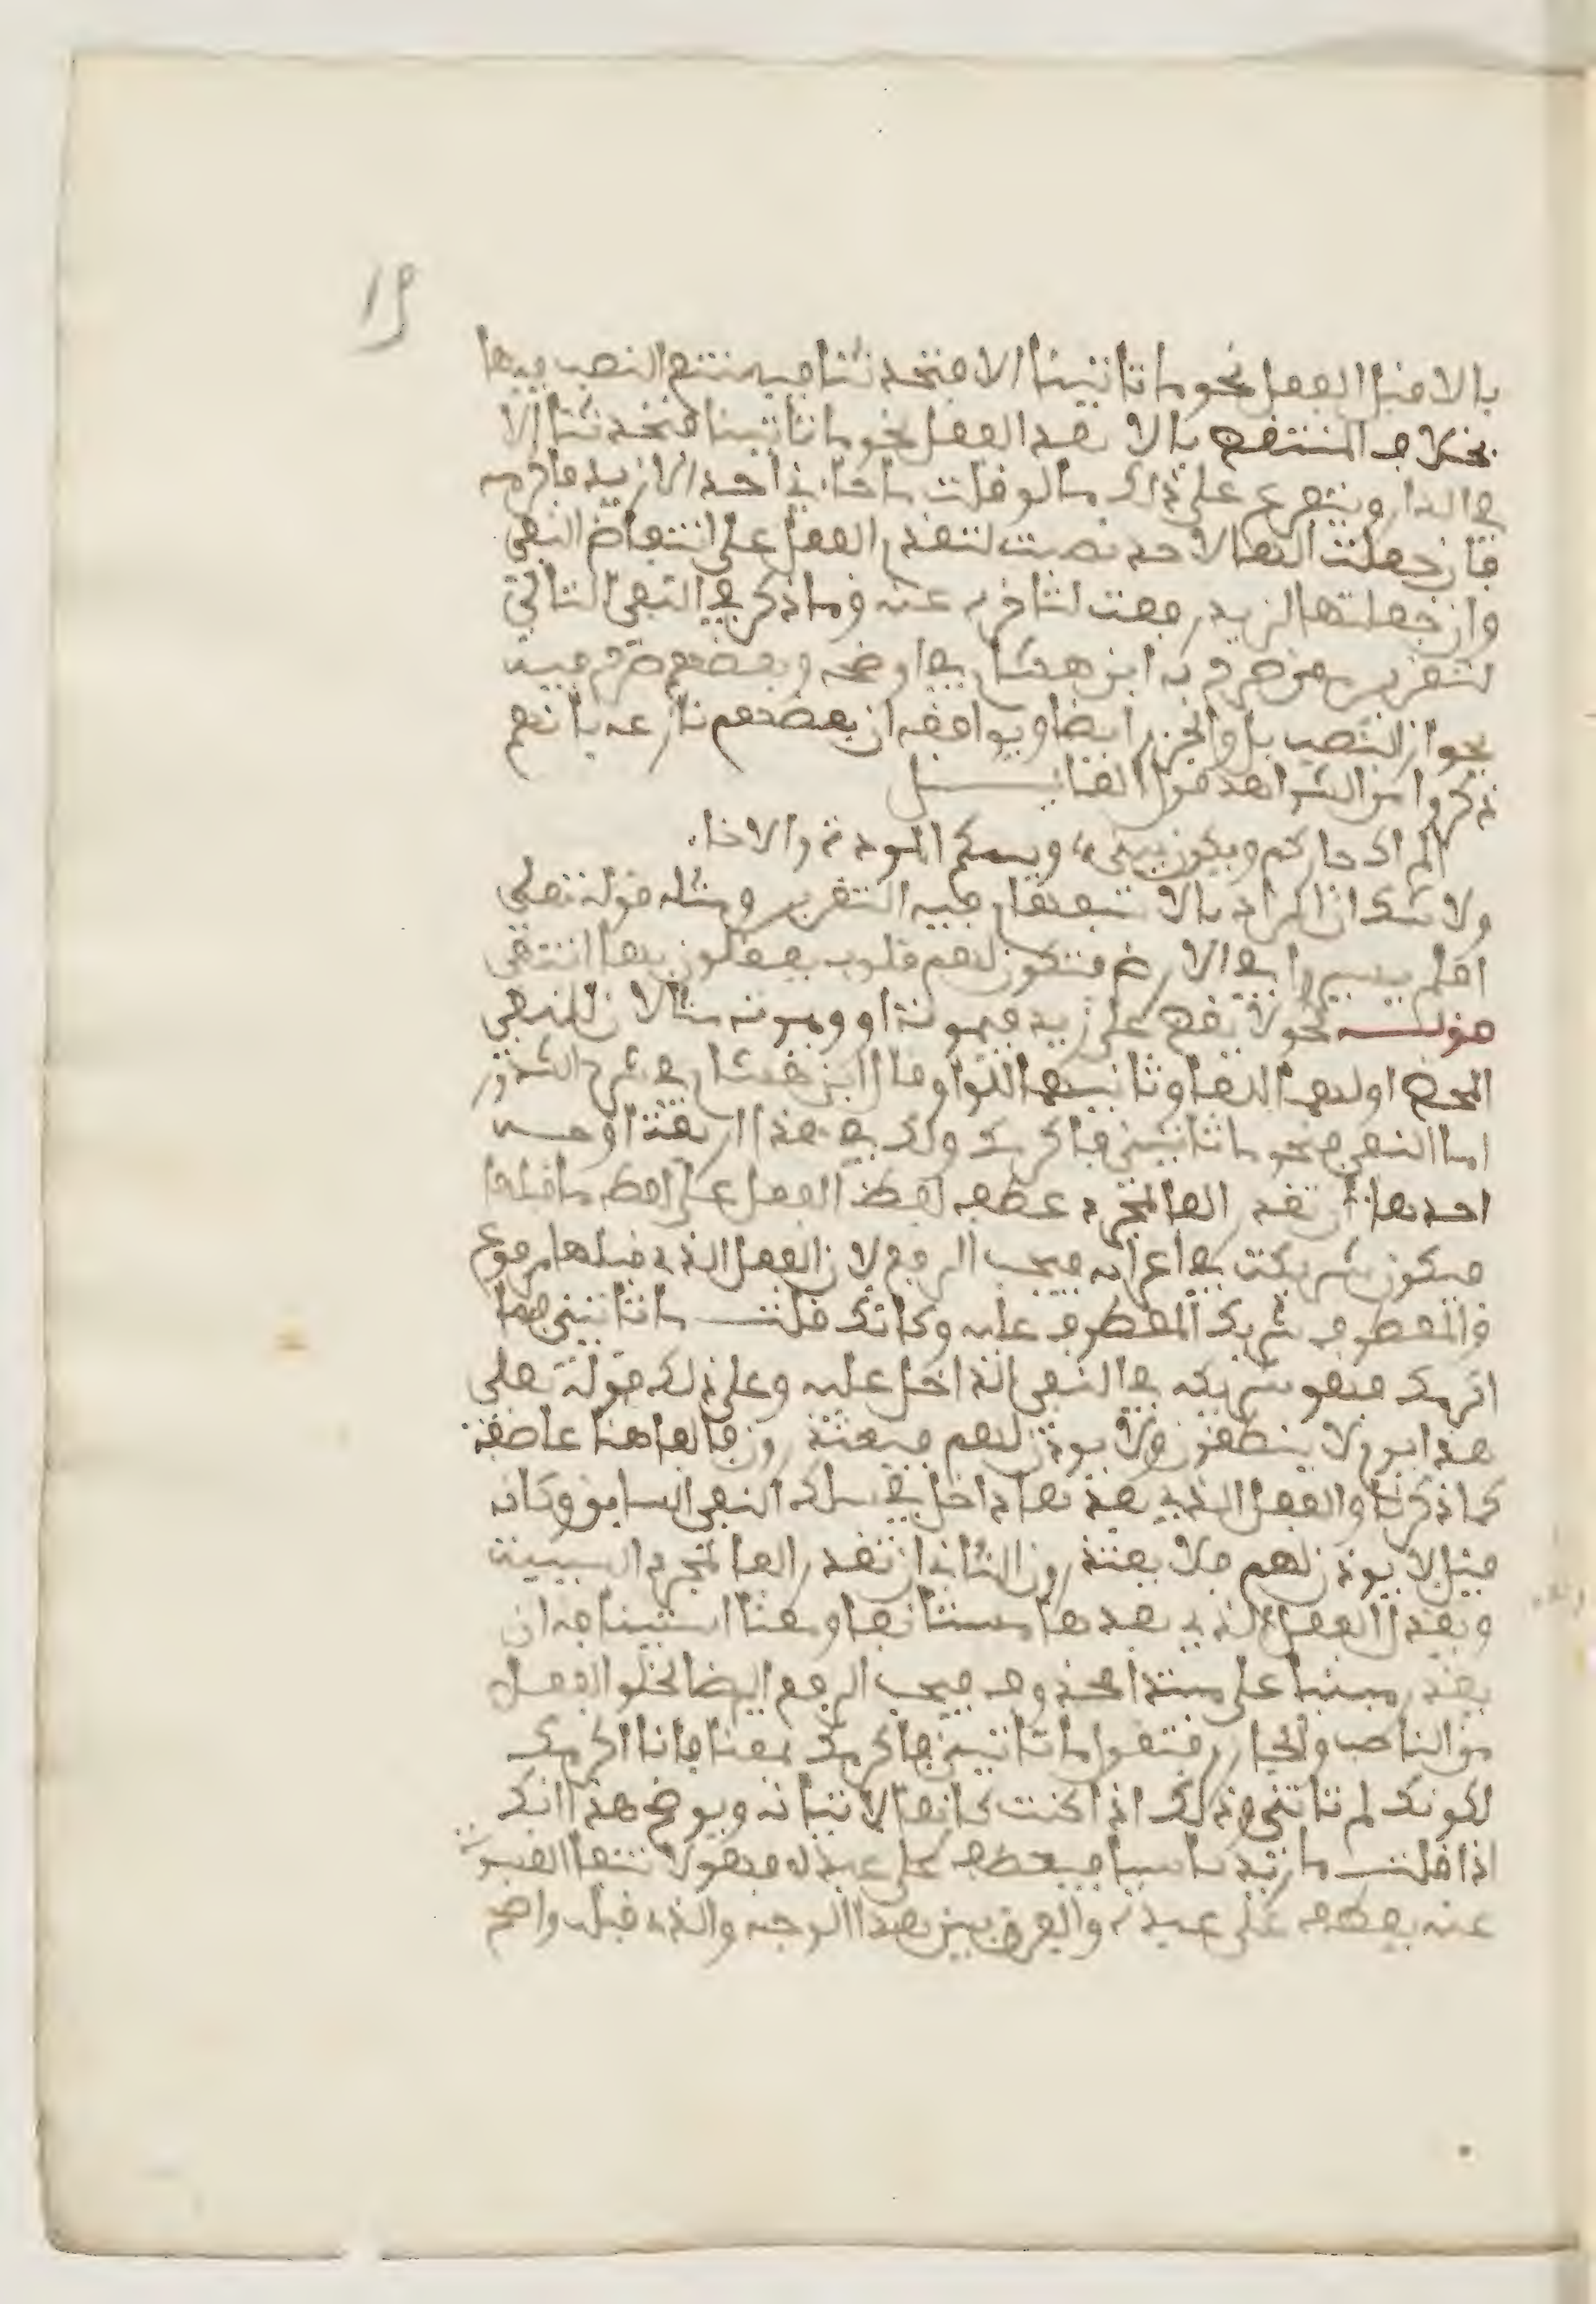 19
بالا قبل الفعل نحو ما تاتينا الا فتحدثنا فيمتنع النصب فيها
بخلاف المنتقض بالا بعد الفعل نحو ما تاتينا فتحدثنا الا
في الدار ويتفرع على ذلك ما لو قلت ما جاءني احد الا زيد فاكرمه
فان جعلت الهاء لاحد نصبت لتقدم الفعل على انتقاض النفي
وان جعلتها لزيد رفعت لتاخره عنه وما ذكر في النفي التالي
لتقرير صرح به ابن هشام في اوضحه وبعضهم صرح فيه
بجواز النصب بل والجزم ايضا ويوافقه ان بعضهم نازعه بانهم
ذكروا من الشواهد قول القائل
الم اك جاركم ويكون بيني وبينكم المودة والاخاء
ولا شك ان المراد بالاستفهام فيه التقرير ومثله قوله تعلى
افلم يسيروا في الارض فتكون لهم قلوب يعقلون بها انتهى
قوله نحو لا يقضى على زيد فيموت او ويموت مثالان للنفي
المحض اولهما للفاء وثانيهما للواو قال ابن هشام في شرح الشذور
اما النفي فنحو ما تاتيني فاكرمك ولك في هذا اربعة اوجه
احدها ان تقدر الفاء لمجرد عطف لفظ الفعل على لفظ ما قبلها
فيكون شريكه في اعرابه فيجب الرفع لان الفعل الذي قبلها مرفوع
والمعطوف شريك المعطوف عليه وكانك قلت ما تاتيني فما
اكرمك فهو شريكه في النفي الداخل عليه وعلى ذلك قوله تعلى
هذا يوم لا ينطقون ولا يوذن لهم فيعتذرون فالفاء هنا عاطفة
كما ذكرنا والفعل الذي بعدها داخل في سلك النفي السابق وكانه
قيل لا يوذن لهم فلا يعتذرون الثاني ان تقدر الفاء لمجرد السببية
ويقدر الفعل الذي بعدها مستانفا ومعنا استينافه ان
يقدر مبنيا على مبتدا محذوف فيجب الرفع ايضا لخلو الفعل
من الناصب والجازم فتقول ما تاتيني فاكرمك بمعنا فانا اكرمك
لكونك لم تاتني وذلك اذا كنت كارها لاتيانه ويوضح هذا انك
اذا قلت ما زيد قاسيا فيعطف على عبده فهو لانتفا القسوة
عنه يعطف على عبده والفرق بين هذا الوجه والذي قبله واضح